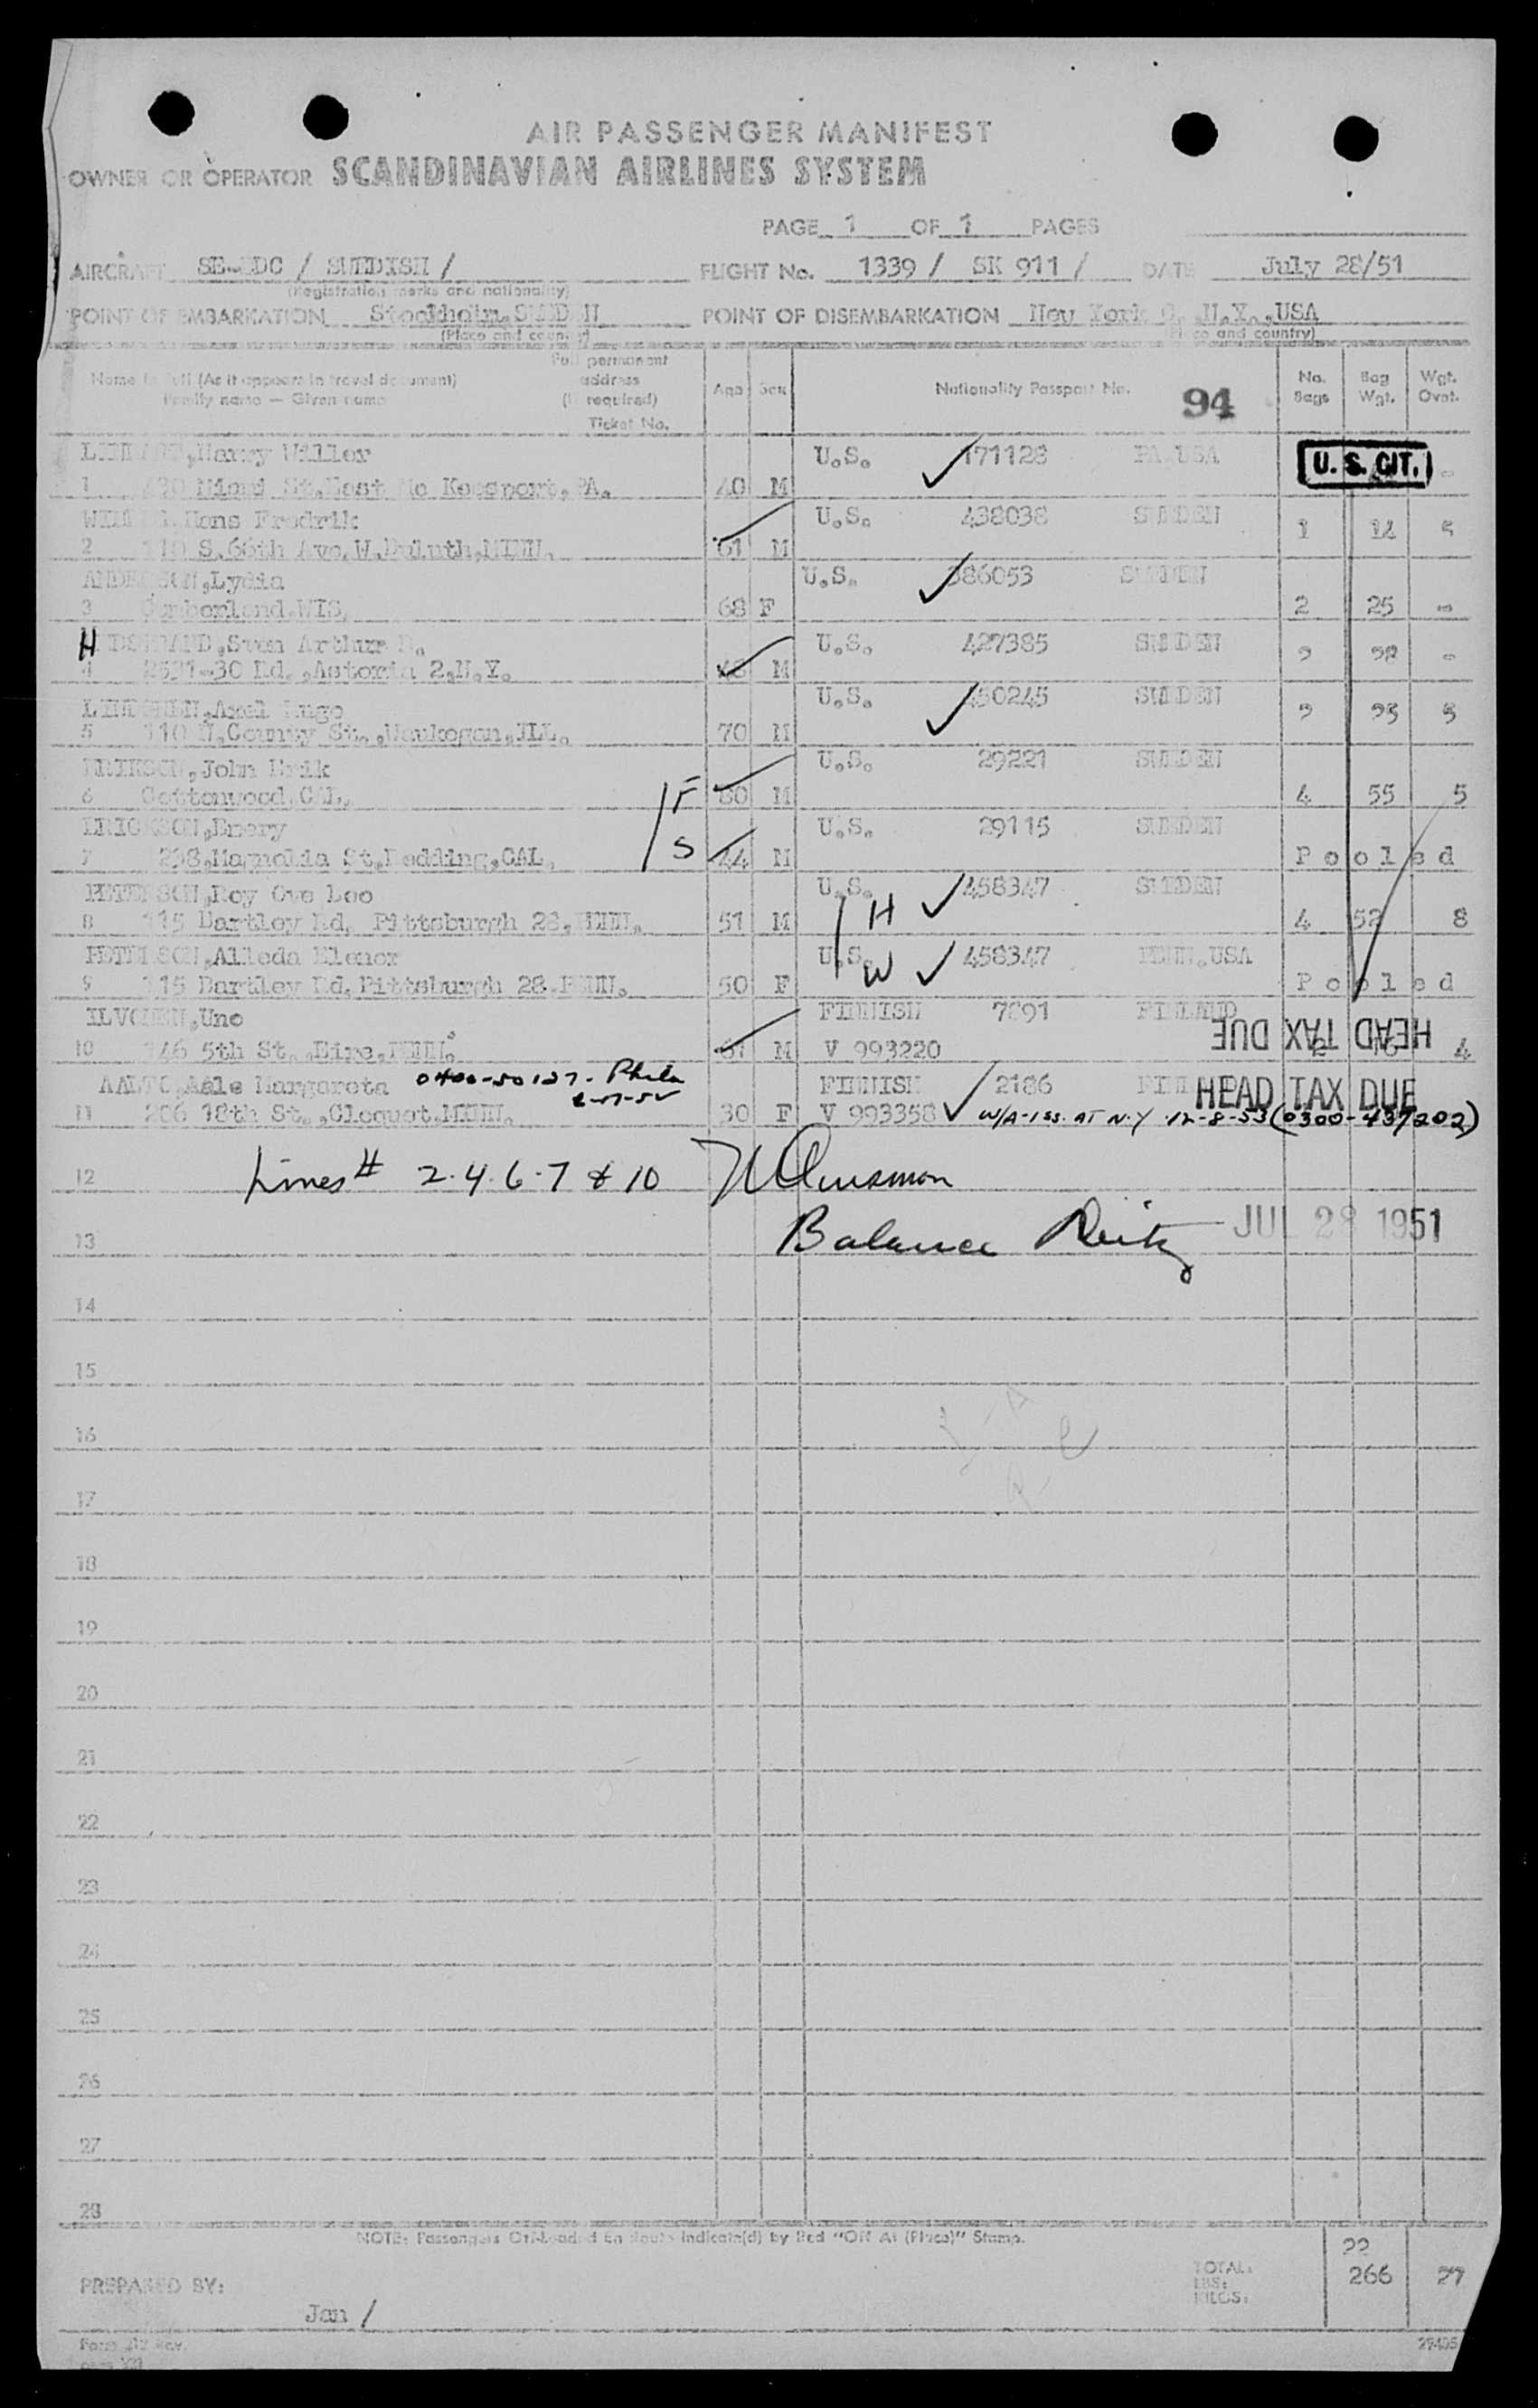 AIR PASSENGER MANIFEST
OWNER OR OPERATOR SCANDINAVIAN AIRLINES SYSTEM
PAGE 1 OF 1 PAGES
AIRCRAFT / SWEDISH / FLIGHT No. 1339 / SK 911 / DATE July 28/51
(Registration marks and nationality)
POINT OF EMBARKATION Stockholm, SWEDEN POINT OF DISEMBARKATION New York N.Y., USA
(Place and country) (Place and country)
Name in full (As it appears in travel document) Full permanent address (if required) Age Sex Nationality Passport No. 94 No. Bags Bag Wgt. Wgt. Ovat.
Family name — Given name Ticket No.
Harry Willer U.S. 171128 PA. USA U. S. CIT. -
1 Miami St. East Mc Keesport, PA. 40 M
Hans Fredrik U.S. 438038 SWEDEN 1 14 5
2 110 S. 66th Ave. W. Duluth, MINN. 61 M
ANDERSON, Lydia U.S. 386053 SWEDEN
3 Cumberland. WIS. 68 F 2 25 -
H Sven Arthur U.S. 427385 SWEDEN
4 2531-30 Rd., Astoria 2, N.Y. M -
Axel Hugo U.S. 450245 SWEDEN
5 110 N. County St., Waukegan, ILL. 70 M 5
ERIKSON, John Erik U.S. 29221 SWEDEN
6 Cottonwood. CAL. F 80 M 4 55 5
ERICKSON, Emery U.S. 29115 SWEDEN
7 298, Magnolia St. Redding, CAL. S 44 M Pooled
PETERSON, Roy Ove Leo U.S. 458347 SWEDEN
8 115 Bartley Rd. Pittsburgh 28, PENN. 51 M H 4 52 8
PETERSON, Alleda Elenor U.S. 458347 PENN. USA
9 115 Bartley Rd. Pittsburgh 28. PENN. 50 F W Pooled
ILVONEN, Uno FINNISH 7891 FINLAND HEAD TAX DUE
10 146 5th St. Eire, PENN. M V 993220 4
AALTO, Margareta 0400-50127- Phila FINNISH 2186 HEAD TAX DUE
11 206 18th St., Cloquet. MINN. 30 F V 993358 W/A-iss. AT N.Y 12-8-53 (0300-437202)
12 Lines # 2.4.6.7 & 10
13 Balance JUL 28 1951
14
15
16
17
18
19
20
21
22
23
24
25
26
27
28
NOTE: Passengers Off-Loaded En Route Indicate(d) by Red "Off At (Place)" Stamp.
22
PREPARED BY: TOTAL: LBS: KILOS: 266 27
Jan /
Form Rev.